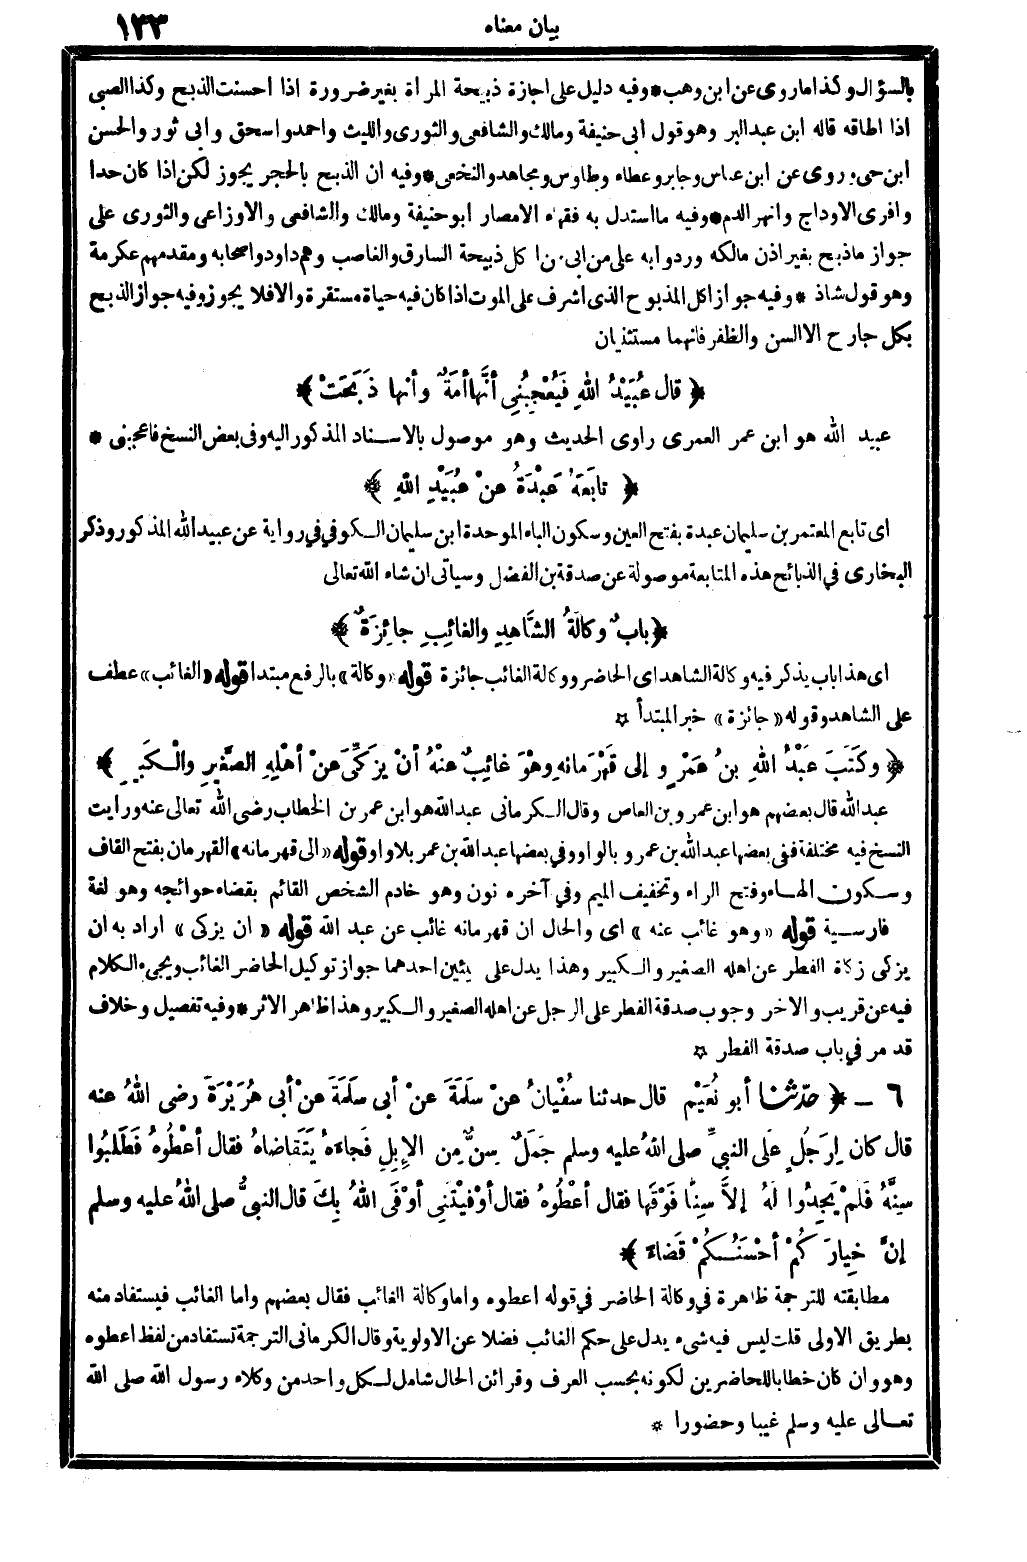 بيان معناه
١٣٣
بالسؤال وكذا ما روى عن ابن وهب * وفيه دليل على اجازة ذبيحة المرأة بغير ضرورة اذا احسنت الذبح وكذا الصبى
اذا اطاقه قاله ابن عبد البر وهو قول ابى حنيفة ومالك والشافعى والثورى والليث واحمد واسحق وابى ثور والحسن
ابن حى وروى عن ابن عباس وجابر وعطاء وطاوس ومجاهد والنخعى * وفيه ان الذبح بالحجر يجوز لكن اذا كان حدا
وافرى الاوداج وانهر الدم * وفيه ما استدل به فقهاء الامصار ابو حنيفة ومالك والشافعى والاوزاعى والثورى على
جواز ما ذبح بغير اذن مالكه وردوا به على من ابى من اكل ذبيحة السارق والغاصب وهم داود واصحابه ومقدمهم عكرمة
وهو قول شاذ * وفيه جواز اكل المذبوح الذى اشرف على الموت اذا كان فيه حياة مستقرة والا فلا يجوز وفيه جواز الذبح
بكل جارح الا السن والظفر فانهما مستثنيان
﴿ قال عُبَيْدُ اللهِ فَيُعْجِبُنِي أَنَّها أَمَةٌ وأنها ذَبَحَتْ ﴾
عبيد الله هو ابن عمر العمرى راوى الحديث وهو موصول بالاسناد المذكور اليه وفى بعض النسخ فاعجبنى *
﴿ تابَعَهُ عَبْدَةُ عنْ عُبَيْدِ اللهِ ﴾
اى تابع المعتمر بن سليمان عبدة بفتح العين وسكون الباء الموحدة ابن سليمان الكوفي في رواية عن عبيد الله المذكور وذكر
البخارى في الذبائح هذه المتابعة موصولة عن صدقة بن الفضل وسيأتى ان شاء الله تعالى
﴿ بابٌ وكالَةُ الشَّاهِدِ والغائِبِ جائِزَةٌ ﴾
اى هذا باب يذكر فيه وكالة الشاهد اى الحاضر ووكالة الغائب جائزة قوله «وكالة» بالرفع مبتدا قوله «الغائب» عطف
على الشاهد وقوله «جائزة» خبر المبتدأ ۞
﴿ وكَتَبَ عَبْدُ اللهِ بنُ عَمْرٍو إلى قَهْرَمانِهِ وهْوَ غائِبٌ عنْهُ أنْ يزَكِّىَ عنْ أهْلِهِ الصَّغِيرِ والْكَبِيرِ ﴾
عبد الله قال بعضهم هو ابن عمرو بن العاص وقال الكرمانى عبد الله هو ابن عمر بن الخطاب رضى الله تعالى عنه ورايت
النسخ فيه مختلفة ففى بعضها عبد الله بن عمرو بالواو وفى بعضها عبد الله بن عمر بلا واو قوله «الى قهرمانه» القهرمان بفتح القاف
وسكون الهاء وفتح الراء وتخفيف الميم وفي آخره نون وهو خادم الشخص القائم بقضاء حوائجه وهو لغة
فارسية قوله «وهو غائب عنه» اى والحال ان قهرمانه غائب عن عبد الله قوله «ان يزكى» اراد به ان
يزكى زكاة الفطر عن اهله الصغير والكبير وهذا يدل على شيئين احدهما جواز توكيل الحاضر الغائب ويجىء الكلام
فيه عن قريب والاخر وجوب صدقة الفطر على الرجل عن اهله الصغير والكبير وهذا ظاهر الاثر * وفيه تفصيل وخلاف
قد مر في باب صدقة الفطر ۞
٦ ـ ﴿ حَدَّثَنا أبو نُعَيْمٍ قال حدثنا سفْيانُ عنْ سلَمَةَ عنْ أبى سلَمَةَ عنْ أبى هُرَيْرَةَ رضى اللهُ عنه
قال كان لِرَجُلٍ عَلَى النبيِّ صلى اللهُ عليه وسلم جَمَلٌ سِنٌّ مِن الإِبِلِ فَجاءَهُ يَتَقَاضاهُ فقال أعْطُوهُ فَطَلَبُوا
سِنَّهُ فَلَمْ يَجِدُوا لَهُ إلَّا سِنًّا فَوْقَها فقال أعْطُوهُ فقال أوْفَيْتَنِى أوْفَى اللهُ بِكَ قال النبيُّ صلى اللهُ عليه وسلم
إنَّ خِيارَكُمْ أحْسَنُكُمْ قَضاءً ﴾
مطابقته للترجمة ظاهرة في وكالة الحاضر في قوله اعطوه واما وكالة الغائب فقال بعضهم واما الغائب فيستفاد منه
بطريق الاولى قلت ليس فيه شىء يدل على حكم الغائب فضلا عن الاولوية وقال الكرمانى الترجمة تستفاد من لفظ اعطوه
وهو وان كان خطابا للحاضرين لكونه بحسب العرف وقرائن الحال شامل لكل واحد من وكلاء رسول الله صلى الله
تعالى عليه وسلم غيبا وحضورا *